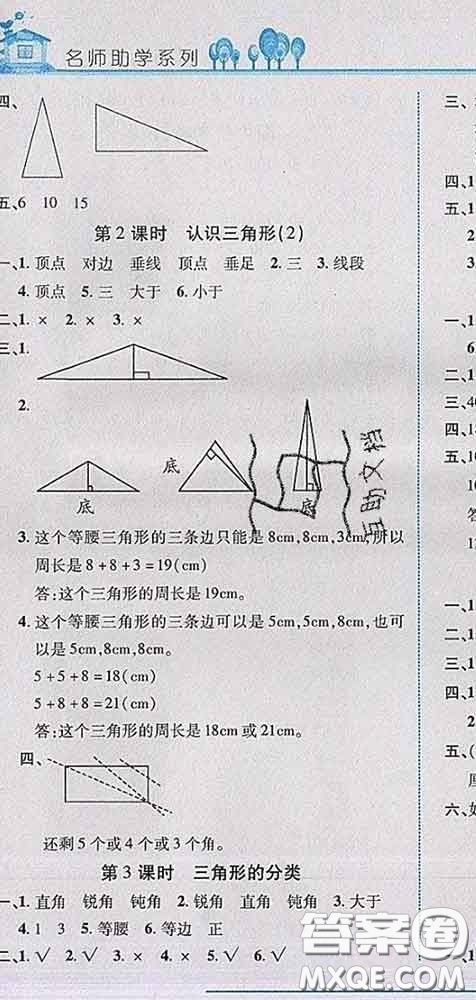 名师助学系列
四、
五、6 10 15
第2课时 认识三角形(2)
一、1.顶点 对边 垂线 顶点 垂足 2.三 3.线段
4.顶点 5.三 大于 6.小于
二、1.× 2.× 3.×
三、1.
2.
底 底 底
3.这个等腰三角形的三条边只能是8cm,8cm,3cm,所以
周长是8+8+3=19(cm)
答:这个三角形的周长是19cm。
4.这个等腰三角形的三条边可以是5cm,5cm,8cm,也可
以是5cm,8cm,8cm。
5+5+8=18(cm)
5+8+8=21(cm)
答:这个三角形的周长是18cm或21cm。
四、
还剩5个或4个或3个角。
第3课时 三角形的分类
一、1.直角 锐角 钝角 2.直角 锐角 钝角 3.大于
4.1 3 5.等腰 6.等边 正
二、1.√ 2.√ 3.× 4.√ 5.√ 6.√
三、
四、1
五、1
一、1
二、1
四、1
五、1
答
一、1
二、1
三、1
四、1
2
五、(
六、如
互助文档
答案圈
MXQE.COM